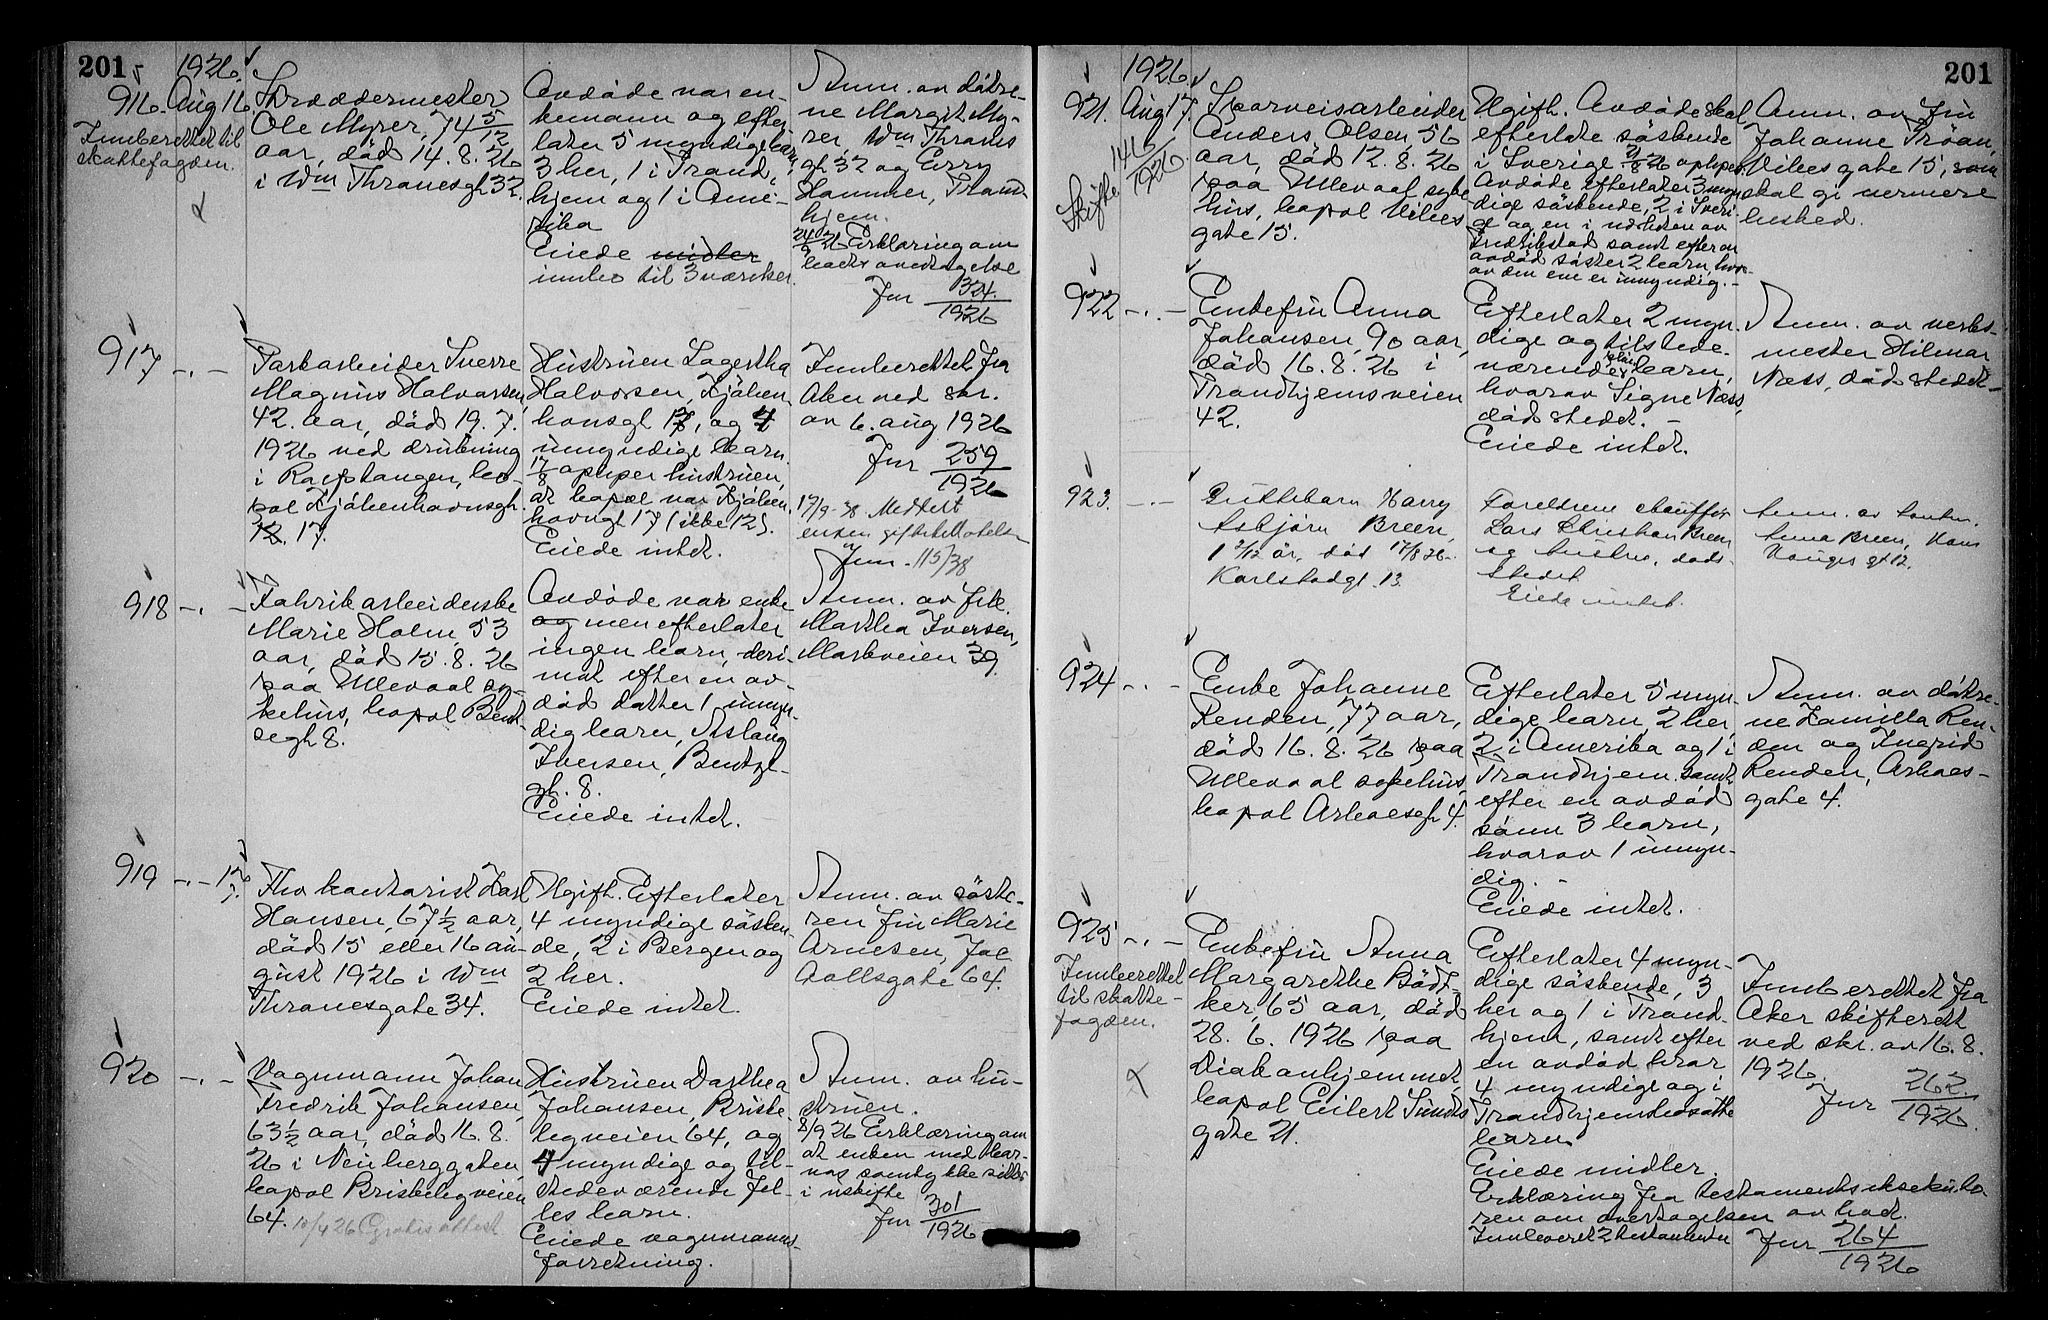 201
1926.
916. Aug 16
Innberettet til
skattefogden.
Skræddermester
Ole Myrer, 74 5/12
aar, död 14.8.26
i Wm Thranesgt 32.
Avdöde var en-
kemann og efter-
later 5 myndige barn,
3 her, 1 i Trond-
hjem og 1 i Ame-
rika
Eiede midler
innbo til 3 værelser.
Anm. av dötre-
ne Margit My-
rer, Wm Thranes
gt 32 og
Hammer, Trond-
hjem.
24/9 26 Erklæring om
boets overtagelse
Jnr 324/1926
917 -"-
Parkarbeider Sverre
Magnus Halvorsen,
42 aar, död 19.7.
1926 ved drukning
i Racstangen, bo-
pæl Kjöbenhavnsgt.
12. 17.
Hustruen Lagertha
Halvorsen, Kjöben-
havnsgt 17, og 4
umyndige barn.
17/8 oplyser hustruen,
at bopæl var Kjöben-
havngt 17 (ikke 12).
Eiede intet.
Innberettet fra
Aker ved skr.
av 6. aug 1926
Jnr 259/1926
17/9-38 Meddelt
enken gifte
Jnr. 115/38
918 -"-
Fabrikarbeiderske
Marie Holm, 53
aar, död 15.8.26
paa Ullevaal sy-
kehus, bopæl Bent-
segt 8.
Avdöde var enke
og men efterlater
ingen barn, deri-
mot efter en av-
död datter 1 umyn-
dig barn, Aslaug
Iversen, Bentze-
gt. 8.
Eiede intet.
Anm. av frk.
Martha Iversen,
Markveien 39.
919 -"- 17/8
Fhv kontorist Karl
Hansen, 67 1/2 aar,
död 15 eller 16 au-
gust 1926 i Wm
Thranesgate 34.
Ugift. Efterlater
4 myndige sösken-
de, 2 i Bergen og
2 her.
Eiede intet.
Anm. av söste-
ren fru Marie
Arnesen, Jac
Aallsgate 64.
920 -"-
Vognmann Johan
Fredrik Johansen,
63 1/2 aar, död 16.8.
26 i Neuberggaten,
bopæl Briskebyveien
64. 10/4 26 Gratis attest
Hustruen Dorthea
Johansen, Briske-
byveien 64, og
4 myndige og til-
stedeværende fel-
les barn.
Eiede vognmanns-
forretning.
Anm. av hu-
struen.
8/9 26 Erklæring om
at enken med bar-
nas samtykke sitter
i uskifte
Jnr 301/1926
201
1926
921. Aug 17.
Skifte 1416/1926.
Sporveisarbeider
Anders Olsen, 56
aar, död 12.8.26
paa Ullevaal syke-
hus, bopæl Vibes
gate 15.
Ugift. Avdöde skal
efterlate söskende
i Sverige 21/8 26 oplyses
Avdöde efterlater 3 myn-
dige söskende, 2 i Sveri-
ge og en i utkanten av
Fredrikstad samt efter en
avdöd söster 2 barn, hvor-
av den ene er umyndig. -
Anm. av fru
Johanne Tröan,
Vibes gate 15, som
skal gi nærmere
besked.
922 -"-
Enkefru Anna
Johansen, 90 aar,
död 16.8.26 i
Trondhjemsveien
42.
Efterlater 2 myn-
dige og tilstede-
værende barn,
hvorav Signe Næss,
dödsstedet. -
Eiede intet.
Anm. av verks-
mester Hilmar
Næss, dödsstedet -
923. -"-
Guttebarn Harry
Asbjörn Breen,
1 2/12 år, död 17/8 26.
Karlstadgt. 13.
Foreldrene chaufför
Lars Christian Breen
og hustru, döds-
stedet
Eiede intet.
Anm. av tanten
Anna Breen, Hans
Hauges gt 12.
924 -"-
Enke Johanne
Renden, 77 aar,
död 16.8.26 paa
Ullevaal sykehus,
bopæl Arboesgt 4.
Efterlater 5 myn-
dige barn, 2 her,
2 i Amerika og 1 i
Trondhjem samt
efter en avdöd
sönn 3 barn,
hvorav 1 umyn-
dig. -
Eiede intet.
Anm. av dötre-
ne Kamilla Ren-
den og Ingrid
Renden, Arboes-
gate 4.
925 -"-
Innberettet
til skatte-
fogden.
Enkefru Anna
Margarethe Bödt-
ker, 65 aar, död
28.6.1926 paa
Diakonhjemmet,
bopæl Eilert Sundts
gate 21.
Efterlater 4 myn-
dige söskende, 3
her og 1 i Trond-
hjem, samt efter
en avdöd bror
4 myndige og i
Trondhjem bosatte
barn
Eiede midler.
Erklæring fra testamentseksekuto-
ren om overtagelsen av boet.
Innleveret 2 testamenter
Jnr 264/1926
Innberettet fra
Aker skifterett
ved skr. av 16.8.
1926.
Jnr 262/1926.